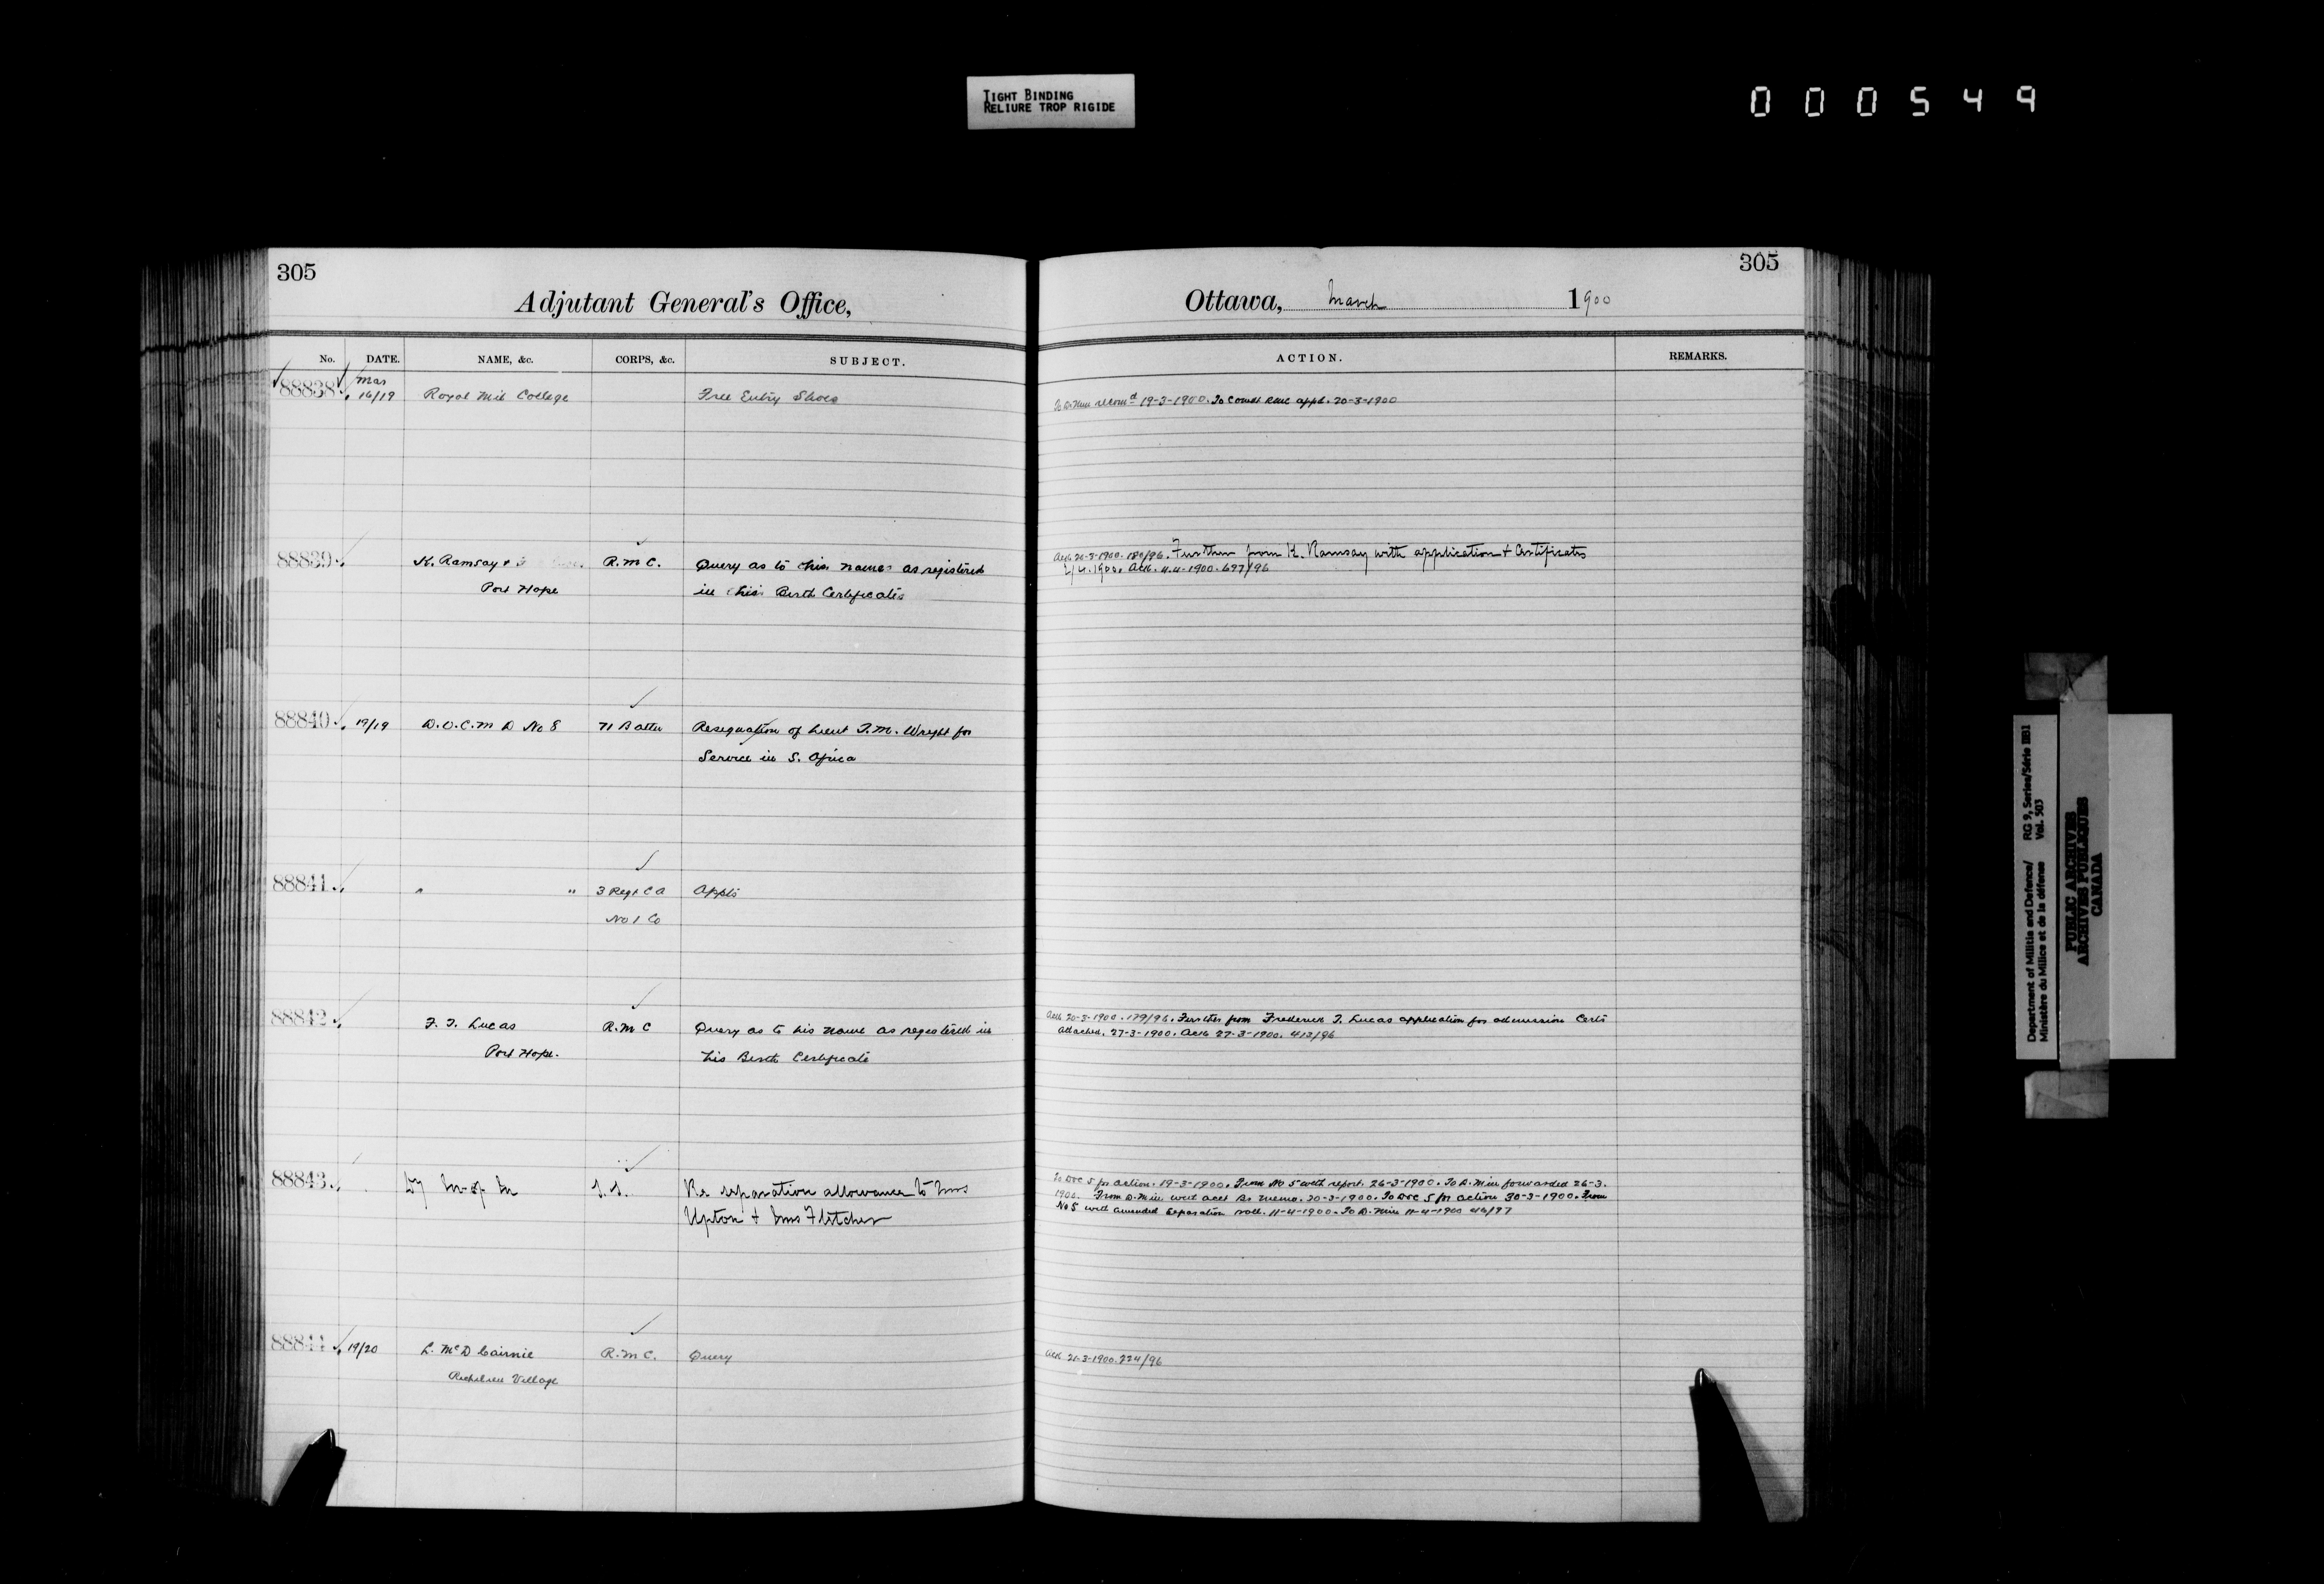 TIGHT BINDING
RELIURE TROP RIGIDE
000549
305
Adjutant General's Office,
No. DATE. NAME, &c. CORPS, &c. SUBJECT.
88838 Mar 16/19 Royal Mil College Free Entry Shoes
88839 K. Ramsay + R.M.C. Query as to his name as registered
Port Hope in his Birth Certificate
88840 19/19 D.O.C. M D No 8 71 Battn Resignation of Lieut T.M. Wright for
Service in S. Africa
88841 " " 3 Regt C A Appts
No 1 Co
88842 F. T. Lucas R.M.C Query as to his name as registered in
Port Hope. his Birth Certificate
88843 Dy M of M S.S. Re separation allowance to Mrs
Upton + Mrs Fletcher
88844 19/20 L. McD Cairnie R.M.C. Query
Richelieu Village
305
Ottawa, March 1900
ACTION. REMARKS.
To D. Min recomd 19-3-1900. To Comdt RMC appd. 20-3-1900
Ack 20-3-1900. 180/96. Further from K. Ramsay with application + Certificates
4/4.1900. Ack. 4.4-1900. 697/96
Ack 20-3-1900. 179/96. Further from Frederick T. Lucas application for admission Certs
attached. 27-3-1900. Ack 27-3-1900. 413/96
To DOC 5 for action. 19-3-1900. From No 5 with report. 26-3-1900. To D. Min forwarded 26-3-
1900. From D. Min with acct Br memo. 20-3-1900. To DOC 5 for action 30-3-1900. From
No 5 with amended separation roll. 11-4-1900. To D. Min 11-4-1900 46/97
Ack 21-3-1900. 224/96
Department of Militia and Defence/ RG 9, Series/Série IIB1
Ministère du Milice et de la défense Vol. 503
PUBLIC ARCHIVES
ARCHIVES PUBLIQUES
CANADA